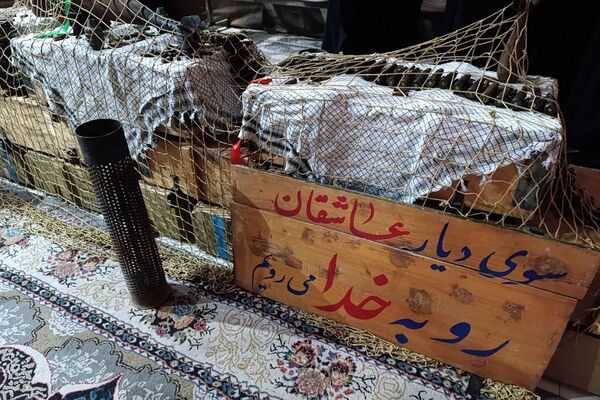 سوی دیار عاشقان
رو به خدا می رویم